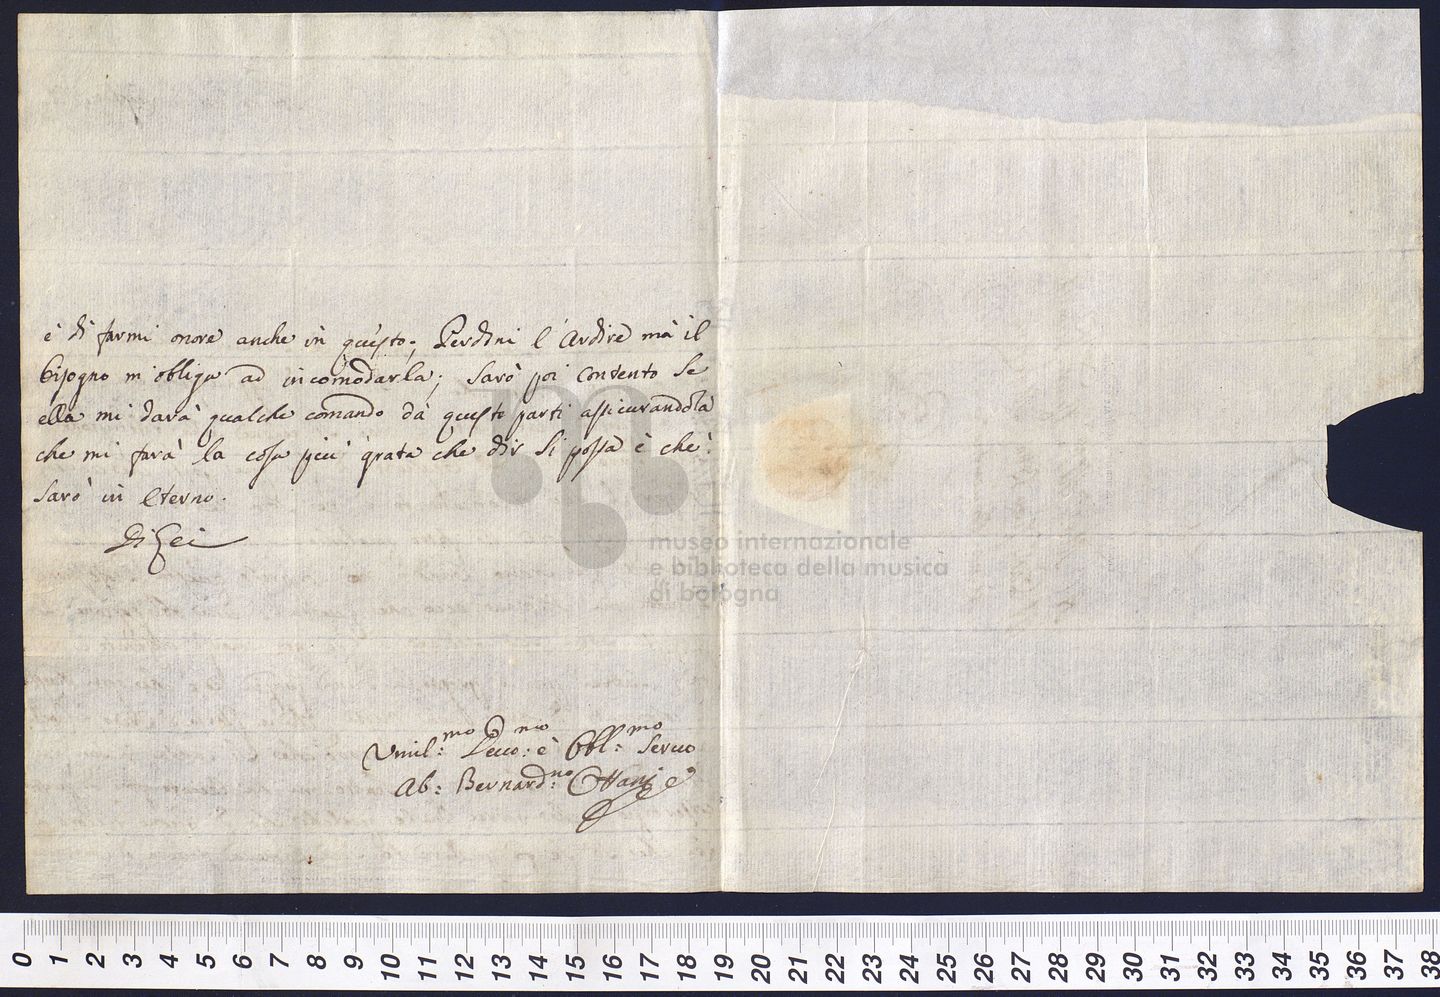 è di farmi onore anche in questo; Perdoni l'Ardire mà il
bisogno m'obliga ad incomodarla; sarò poi contento se
ella mi darà qualche comando dà queste parti assicurandola
che mi farà la cosa più grata che dir si possa è che
sarò in eterno.
Di Lei
museo internazionale
e biblioteca della musica
di bologna
Umil:mo Devo: è Obl:mo Servo
Ab: Bernard:no Ottani
0 1 2 3 4 5 6 7 8 9 10 11 12 13 14 15 16 17 18 19 20 21 22 23 24 25 26 27 28 29 30 31 32 33 34 35 36 37 38